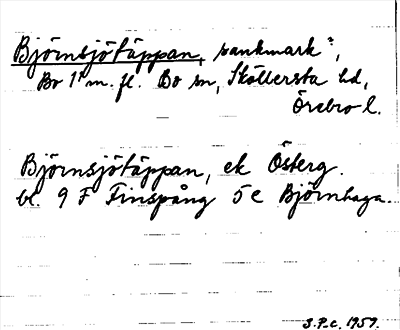 Björnsjötäppan, sankmark?,
Bo 1:1 m. fl. Bo sn, Sköllersta hd,
Örebro l.
Björnsjötäppan, ek Österg.
bl. 9 F Finspång 5 c Björnhaga.
S.P-c. 1959.